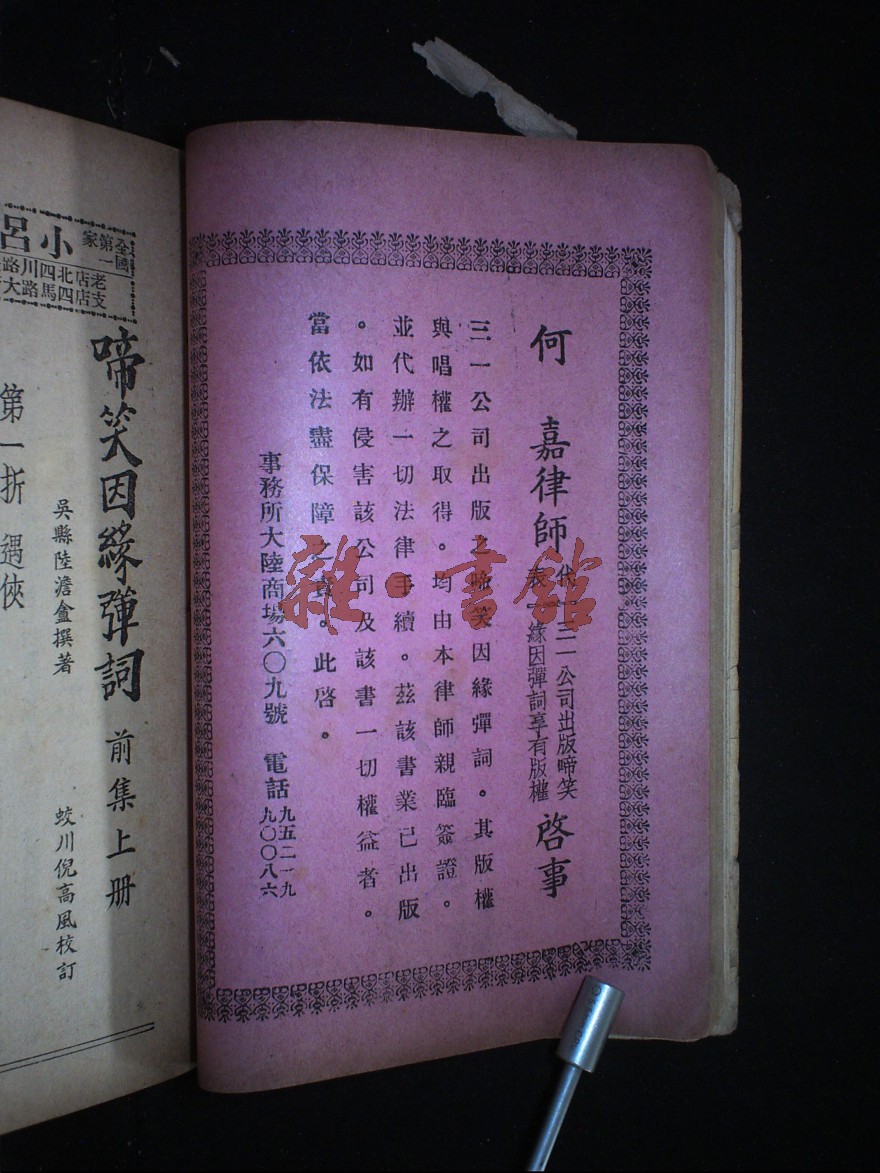 何 嘉律師 代表 三一公司出版啼笑
緣因彈詞享有版權 啓事
三一公司出版之啼笑因緣彈詞。其版權
與唱權之取得。均由本律師親臨簽證。
並代辦一切法律手續。茲該書業已出版
。如有侵害該公司及該書一切權益者。
當依法盡保障之責。此啓。
事務所大陸商場六〇九號 電話 九五二一九
九〇〇八六
雜·書館
全國第一家 小呂
老店北四川路
支店四馬路大
啼笑因緣彈詞 前集上册
吳縣陸澹盦撰著 蛟川倪高風校訂
第一折 遇俠